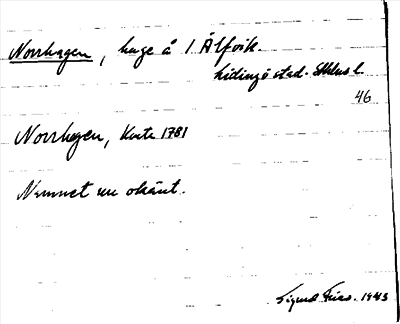 Norrhagen, hage å 1 Älfvik
Lidingö stad. Sthlms l.
46
Norrhegen, Karta 1781
Namnet nu okänt.
Sigurd Fries. 1943